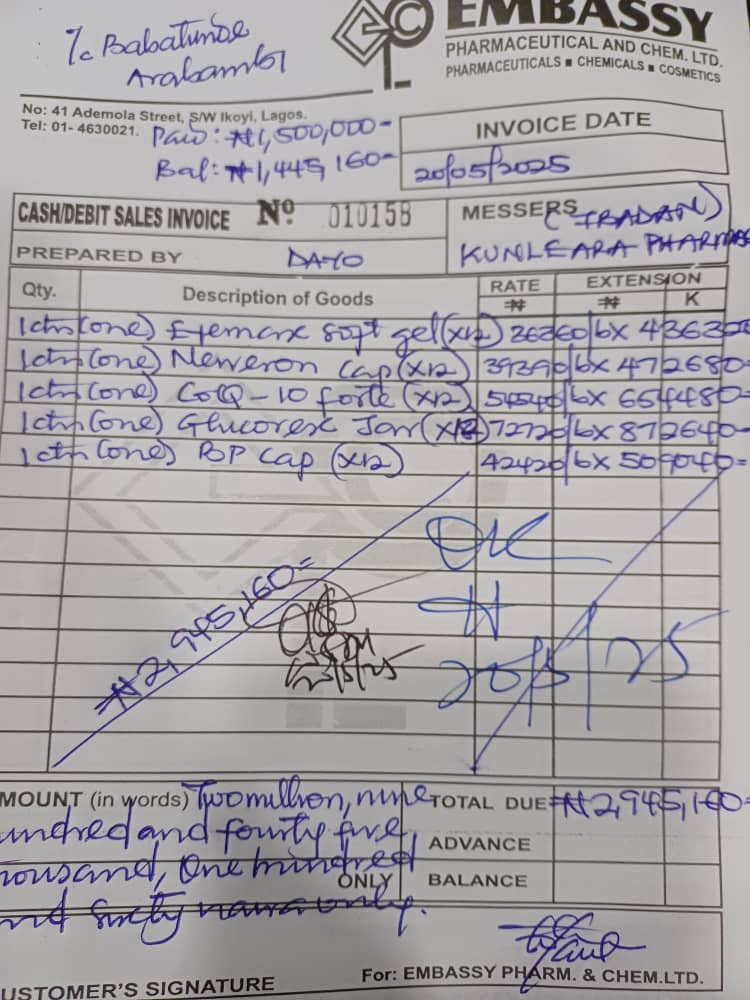 ℅ Babatunde
Arabambi
EMBASSY
PHARMACEUTICAL AND CHEM. LTD.
PHARMACEUTICALS ■ CHEMICALS ■ COSMETICS
No: 41 Ademola Street, S/W Ikoyi, Lagos.
Tel: 01- 4630021.
Paid: ₦1,500,000=
Bal: ₦1,445,160=
INVOICE DATE
20/05/2025
CASH/DEBIT SALES INVOICE Nº 010158
MESSERS (IBADAN)
KUNLEARA PHARMA
PREPARED BY DAYO
Qty. Description of Goods RATE ₦ EXTENSION ₦ K
1ctn (one) Eyemax soft gel (x12) 36360/6x 436320=
1ctn (one) Neweron Cap (x12) 39390/6x 472680=
1ctn (one) CoQ-10 forte (x12) 54540/6x 654480=
1ctn (one) Glucorex Jar (x12) 72720/6x 872640=
1ctn (one) BP cap (x12) 42420/6x 509040=
₦2,945,160=
20/5/25
MOUNT (in words) Two million, nine
undred and fourty five
housand, One hundred
nd sixty naira only.
ONLY
TOTAL DUE ₦2,945,160=
ADVANCE
BALANCE
USTOMER'S SIGNATURE
For: EMBASSY PHARM. & CHEM.LTD.